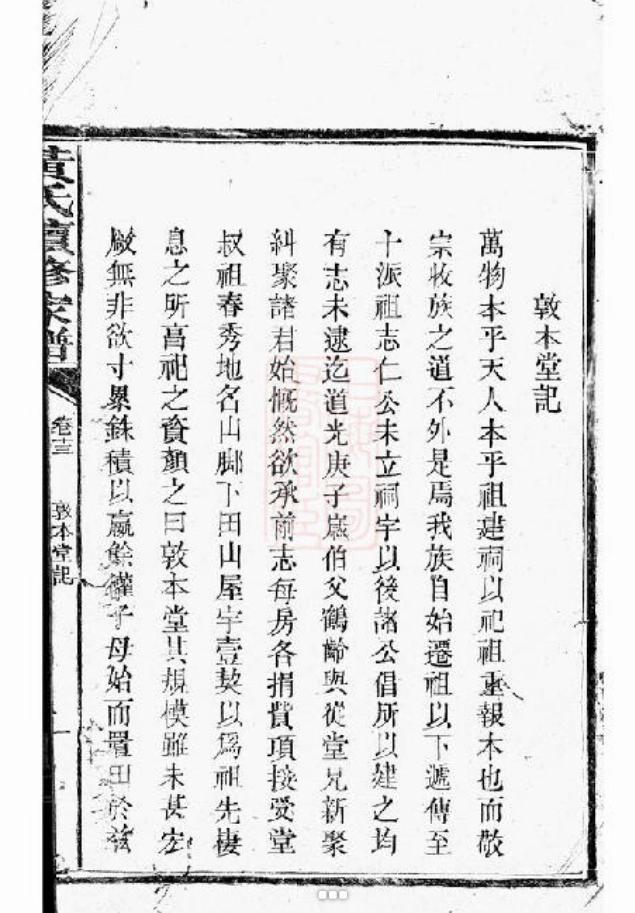 敦本堂記
萬物本乎天人本乎祖建祠以祀祖重報本也而敬
宗收族之道不外是焉我族自始遷祖以下遞傳至
十派祖志仁公未立祠宇以後諸公倡所以建之均
有志未逮迄道光庚子嵗伯父鶴齡與從堂兄新聚
糾聚諸君始慨然欲承前志每房各捐貲項接受堂
叔祖春秀地名山腳下田山屋宇壹契以爲祖先棲
息之所高祀之資顏之曰敦本堂其規模雖未甚宏
厰無非欲寸累銖積以贏餘權子母始而置田於茲
黃氏續修家譜
卷十三
敦本堂記
一